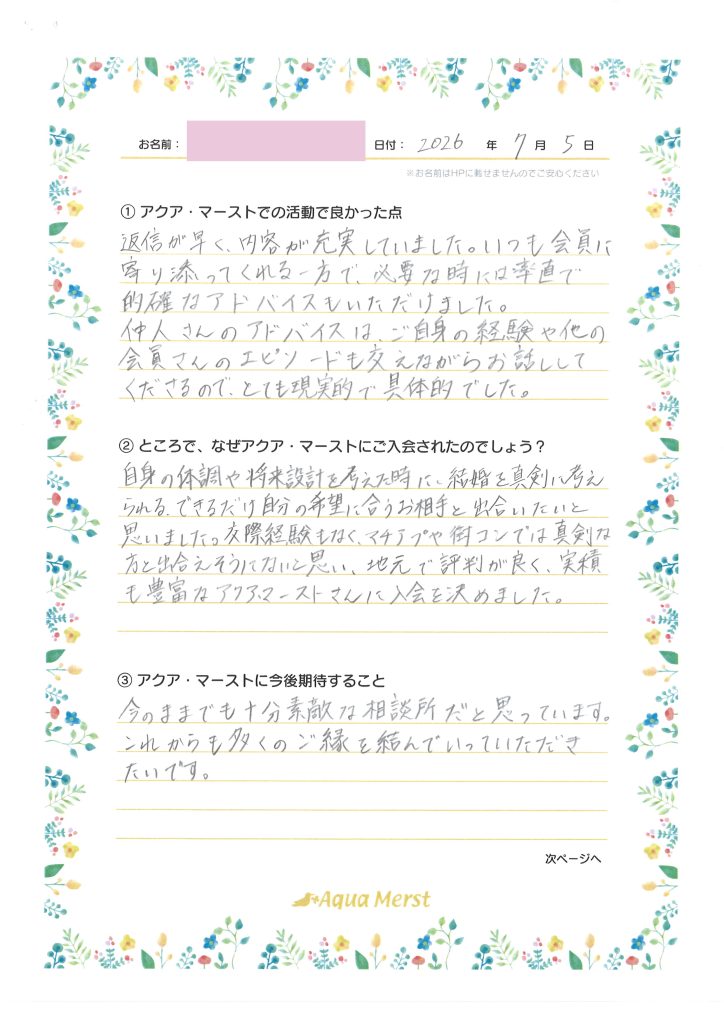 お名前： 日付： 2026 年 7 月 5 日
※お名前はHPに載せませんのでご安心ください
① アクア・マーストでの活動で良かった点
返信が早く、内容が充実していました。いつも会員に
寄り添ってくれる一方で、必要な時には率直で
的確なアドバイスもいただけました。
仲人さんのアドバイスは、ご自身の経験や他の
会員さんのエピソードも交えながらお話しして
くださるので、とても現実的で具体的でした。
② ところで、なぜアクア・マーストにご入会されたのでしょう？
自身の体調や将来設計を考えた時に、結婚を真剣に考え
られる、できるだけ自分の希望に合うお相手と出合いたいと
思いました。交際経験もなく、マチアプや街コンでは真剣な
方と出合えそうにないと思い、地元で評判が良く、実積
も豊富なアクア・マーストさんに入会を決めました。
③ アクア・マーストに今後期待すること
今のままでも十分素敵な相談所だと思っています。
これからも多くのご縁を結んでいっていただき
たいです。
次ページへ
Aqua Merst